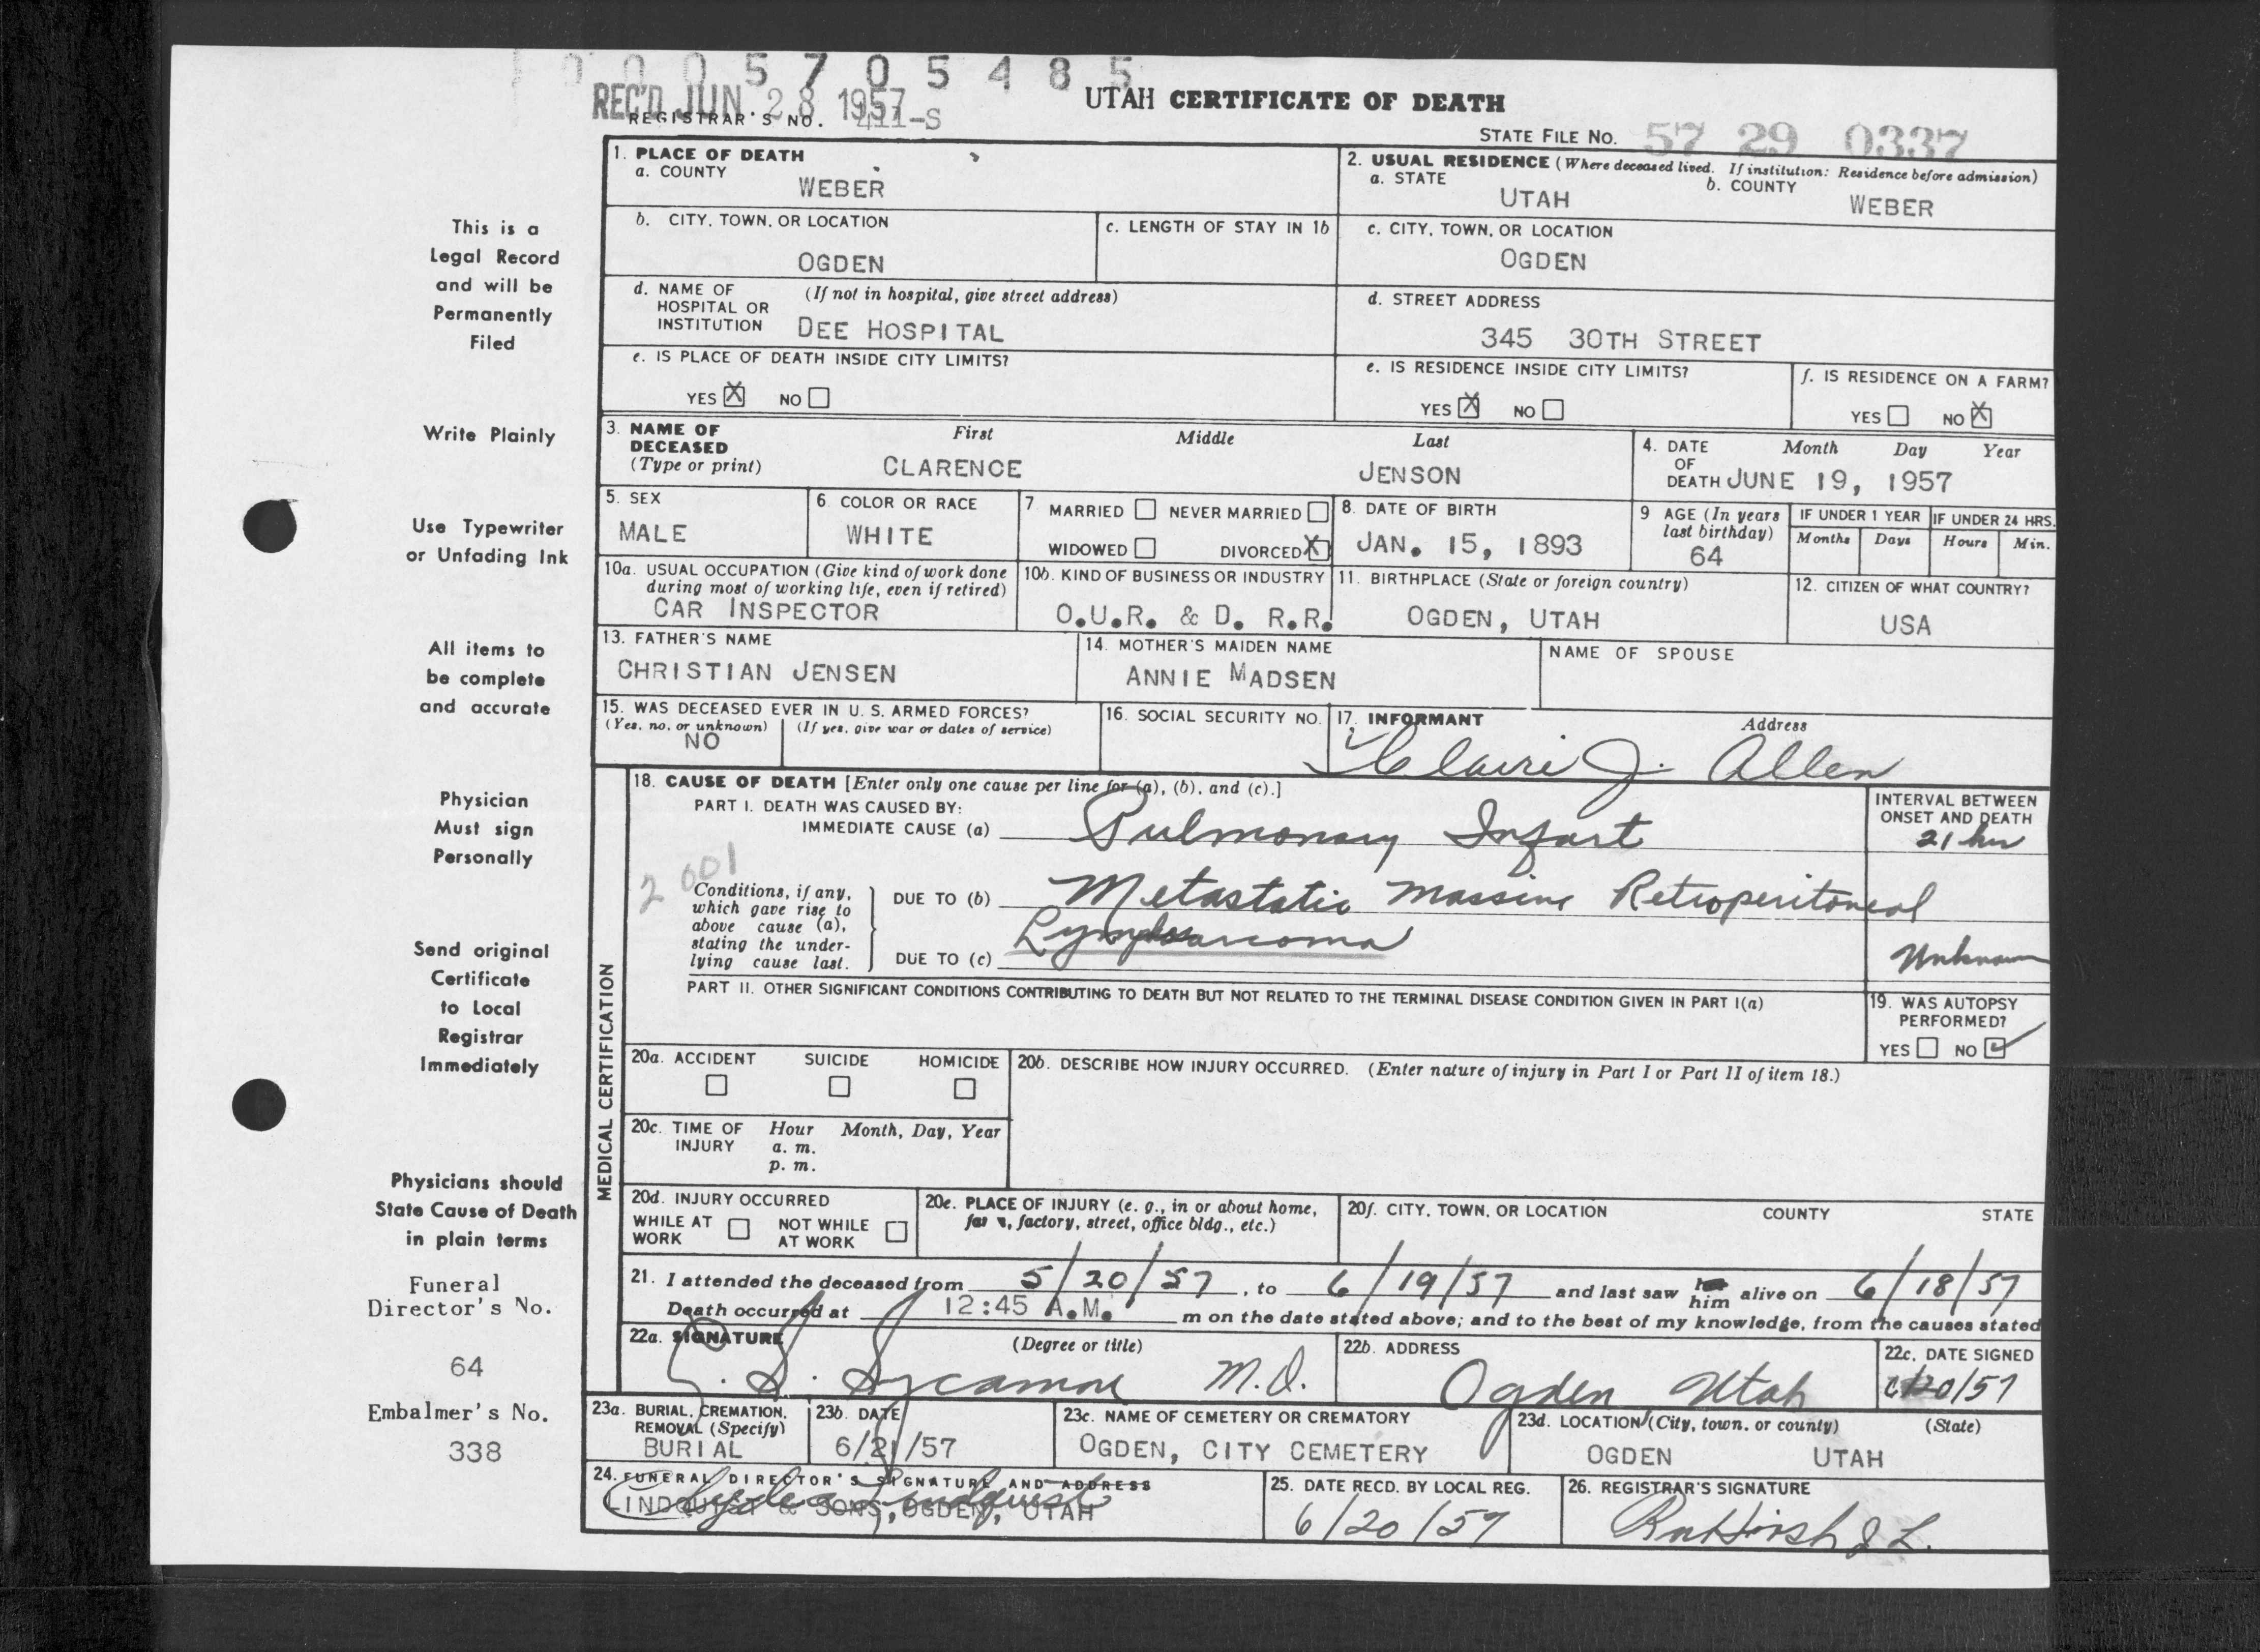 0 0 0 5 7 0 5 4 8 5
REC'D JUN. 28 1957
UTAH CERTIFICATE OF DEATH
REGISTRAR'S NO. 411-S
STATE FILE NO. 57 29 0337
1. PLACE OF DEATH
a. COUNTY
WEBER
2. USUAL RESIDENCE (Where deceased lived. If institution: Residence before admission)
a. STATE
UTAH
b. COUNTY
WEBER
b. CITY, TOWN, OR LOCATION
OGDEN
c. LENGTH OF STAY IN 1b
c. CITY, TOWN, OR LOCATION
OGDEN
d. NAME OF HOSPITAL OR INSTITUTION
(If not in hospital, give street address)
DEE HOSPITAL
d. STREET ADDRESS
345 30TH STREET
e. IS PLACE OF DEATH INSIDE CITY LIMITS?
YES X NO
e. IS RESIDENCE INSIDE CITY LIMITS?
YES X NO
f. IS RESIDENCE ON A FARM?
YES NO X
3. NAME OF DECEASED
(Type or print)
First Middle Last
CLARENCE JENSON
4. DATE OF DEATH
Month Day Year
JUNE 19, 1957
5. SEX
MALE
6. COLOR OR RACE
WHITE
7 MARRIED NEVER MARRIED
WIDOWED DIVORCED X
8. DATE OF BIRTH
JAN. 15, 1893
9 AGE (In years last birthday)
64
IF UNDER 1 YEAR
Months Days
IF UNDER 24 HRS.
Hours Min.
10a. USUAL OCCUPATION (Give kind of work done during most of working life, even if retired)
CAR INSPECTOR
10b. KIND OF BUSINESS OR INDUSTRY
O.U.R. & D. R.R.
11. BIRTHPLACE (State or foreign country)
OGDEN, UTAH
12. CITIZEN OF WHAT COUNTRY?
USA
13. FATHER'S NAME
CHRISTIAN JENSEN
14. MOTHER'S MAIDEN NAME
ANNIE MADSEN
NAME OF SPOUSE
15. WAS DECEASED EVER IN U. S. ARMED FORCES?
(Yes, no, or unknown) (If yes, give war or dates of service)
NO
16. SOCIAL SECURITY NO.
17. INFORMANT Address
Claire J. Allen
MEDICAL CERTIFICATION
18. CAUSE OF DEATH [Enter only one cause per line for (a), (b), and (c).]
PART I. DEATH WAS CAUSED BY:
IMMEDIATE CAUSE (a) Pulmonary Infart
INTERVAL BETWEEN ONSET AND DEATH
21 hrs
2 001
Conditions, if any, which gave rise to above cause (a), stating the underlying cause last.
DUE TO (b) Metastatic massive Retroperitoneal
Lymphosarcoma
DUE TO (c)
Unknown
PART II. OTHER SIGNIFICANT CONDITIONS CONTRIBUTING TO DEATH BUT NOT RELATED TO THE TERMINAL DISEASE CONDITION GIVEN IN PART I(a)
19. WAS AUTOPSY PERFORMED?
YES NO ✓
20a. ACCIDENT SUICIDE HOMICIDE
20b. DESCRIBE HOW INJURY OCCURRED. (Enter nature of injury in Part I or Part II of item 18.)
20c. TIME OF INJURY
Hour Month, Day, Year
a. m.
p. m.
20d. INJURY OCCURRED
WHILE AT WORK NOT WHILE AT WORK
20e. PLACE OF INJURY (e. g., in or about home, farm, factory, street, office bldg., etc.)
20f. CITY, TOWN, OR LOCATION COUNTY STATE
21. I attended the deceased from 5/20/57, to 6/19/57 and last saw him alive on 6/18/57
Death occurred at 12:45 A.M. m on the date stated above; and to the best of my knowledge, from the causes stated
22a. SIGNATURE (Degree or title)
Sycamore M.D.
22b. ADDRESS
Ogden Utah
22c. DATE SIGNED
6/20/57
23a. BURIAL, CREMATION, REMOVAL (Specify)
BURIAL
23b. DATE
6/21/57
23c. NAME OF CEMETERY OR CREMATORY
OGDEN, CITY CEMETERY
23d. LOCATION (City, town, or county) (State)
OGDEN UTAH
24. FUNERAL DIRECTOR'S SIGNATURE AND ADDRESS
LINDQUIST & SONS, OGDEN, UTAH
25. DATE RECD. BY LOCAL REG.
6/20/57
26. REGISTRAR'S SIGNATURE
This is a
Legal Record
and will be
Permanently
Filed
Write Plainly
Use Typewriter
or Unfading Ink
All items to
be complete
and accurate
Physician
Must sign
Personally
Send original
Certificate
to Local
Registrar
Immediately
Physicians should
State Cause of Death
in plain terms
Funeral
Director's No.
64
Embalmer's No.
338